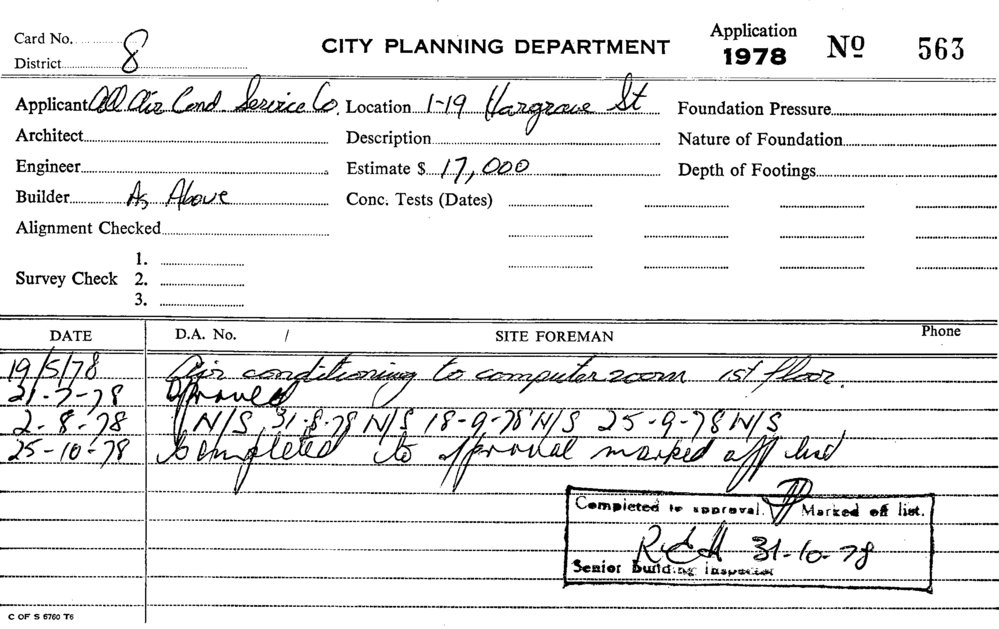 Card No.
District 8
CITY PLANNING DEPARTMENT
Application
1978 Nº 563
Applicant All Air Cond Service Co. Location 1-19 Hargrave St Foundation Pressure
Architect Description Nature of Foundation
Engineer Estimate $ 17,000 Depth of Footings
Builder As Above Conc. Tests (Dates)
Alignment Checked
Survey Check 1.
2.
3.
DATE D.A. No. / SITE FOREMAN Phone
19/5/78 Air conditioning to computer room 1st floor.
21-7-78 Approved
2-8-78 N/S 31-8-78 N/S 18-9-78 N/S 25-9-78 N/S
25-10-78 Completed to approval marked off list
Completed to approval. Marked off list.
31-10-78
Senior Building Inspector
C OF S 6760 T6